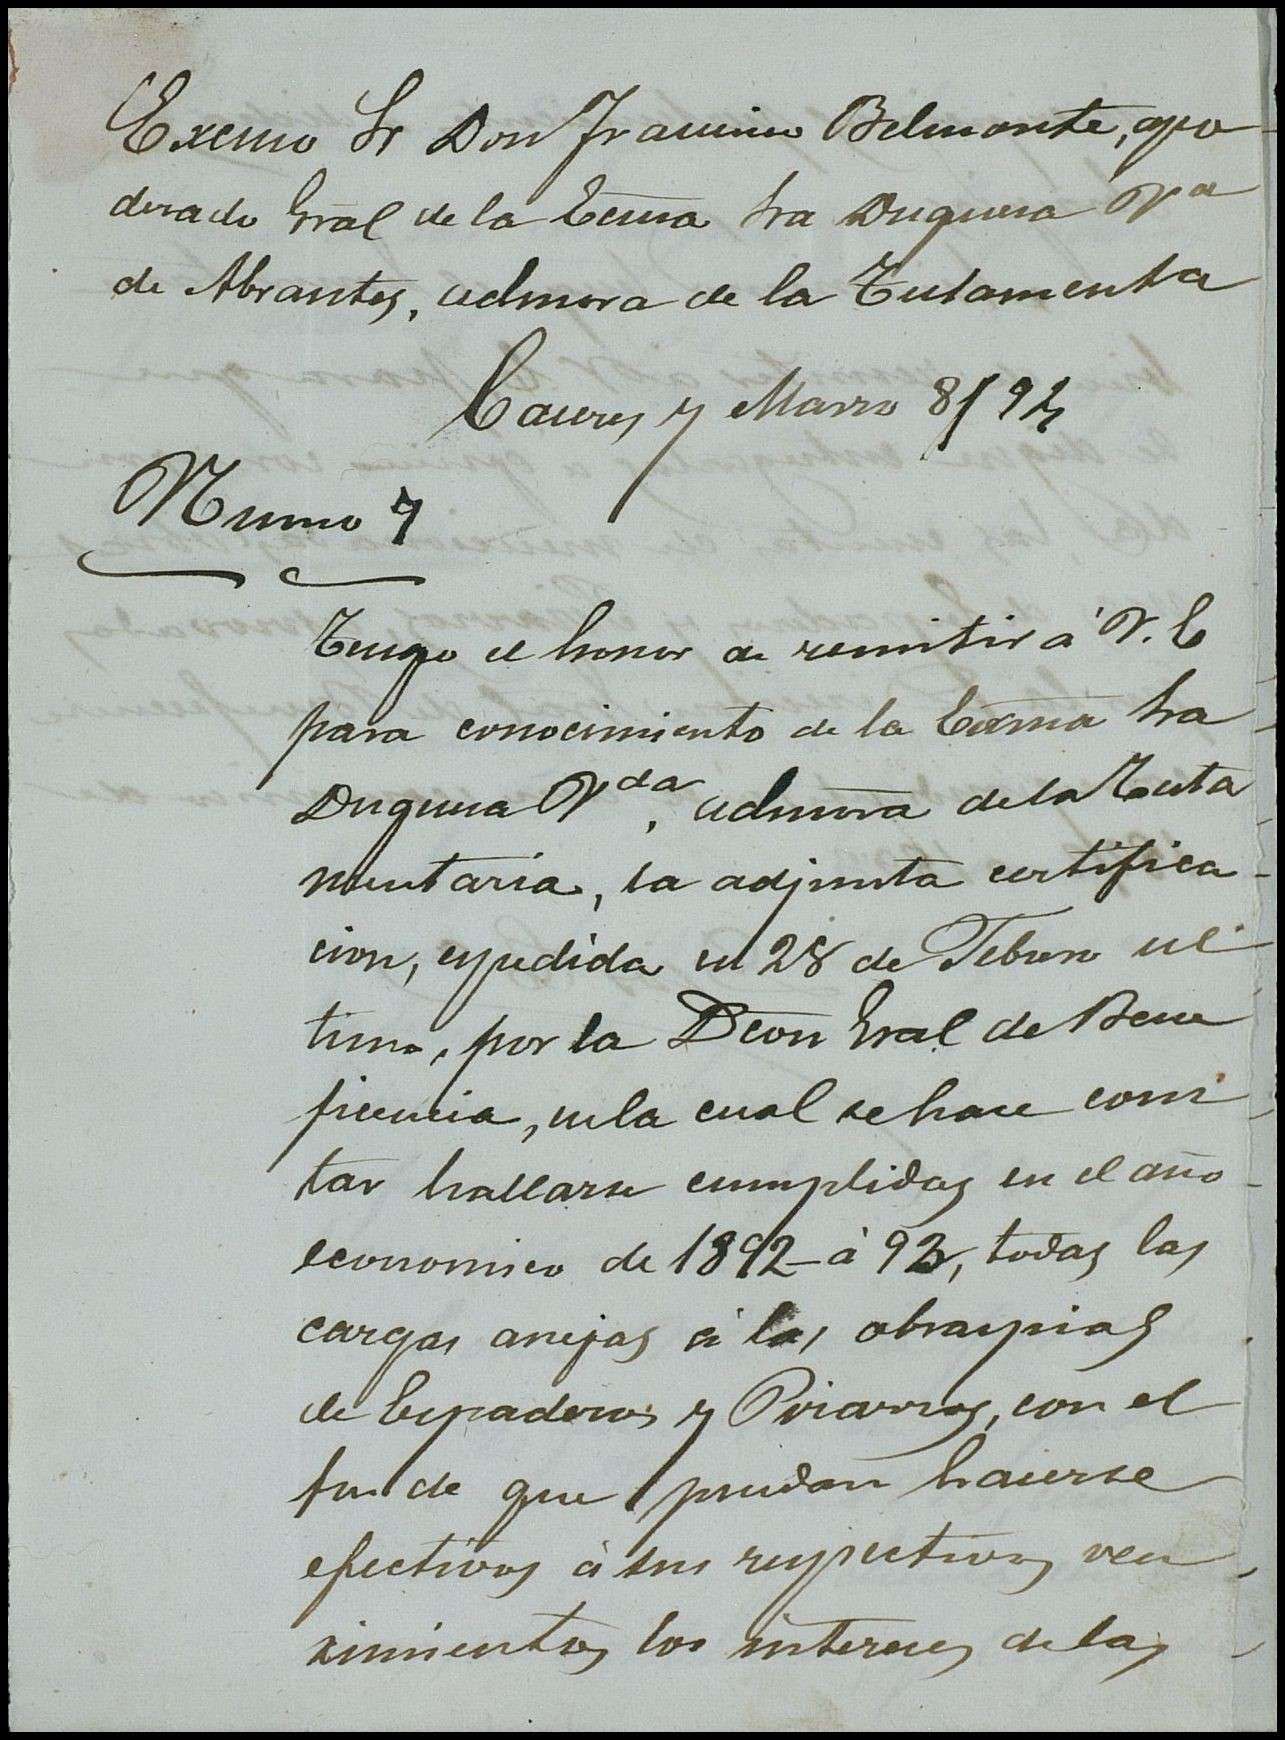 Excmo Sr Don Francisco Belmonte, apo-
derado Gral de la Ecma Sra Duquesa Vda
de Abrantes, admora de la Testamenta
Caceres y Marzo 8/94
Numo 7
Tengo el honor de remitir á V. E
para conocimiento de la Excma Sra
Duquesa Vda, admora de la Testa
mentaria, la adjunta certifica-
cion, espedida en 28 de Febrero ul-
timo, por la Dcon Gral de Bene
ficencia, en la cual se hace cons
tar hallarse cumplidas en el año
economico de 1892 á 93, todas las
cargas anejas á las obraspias
de Espaderos y Pizarros, con el
fin de que puedan hacerse
efectivos á sus respectivos ven-
cimientos los intereses de las